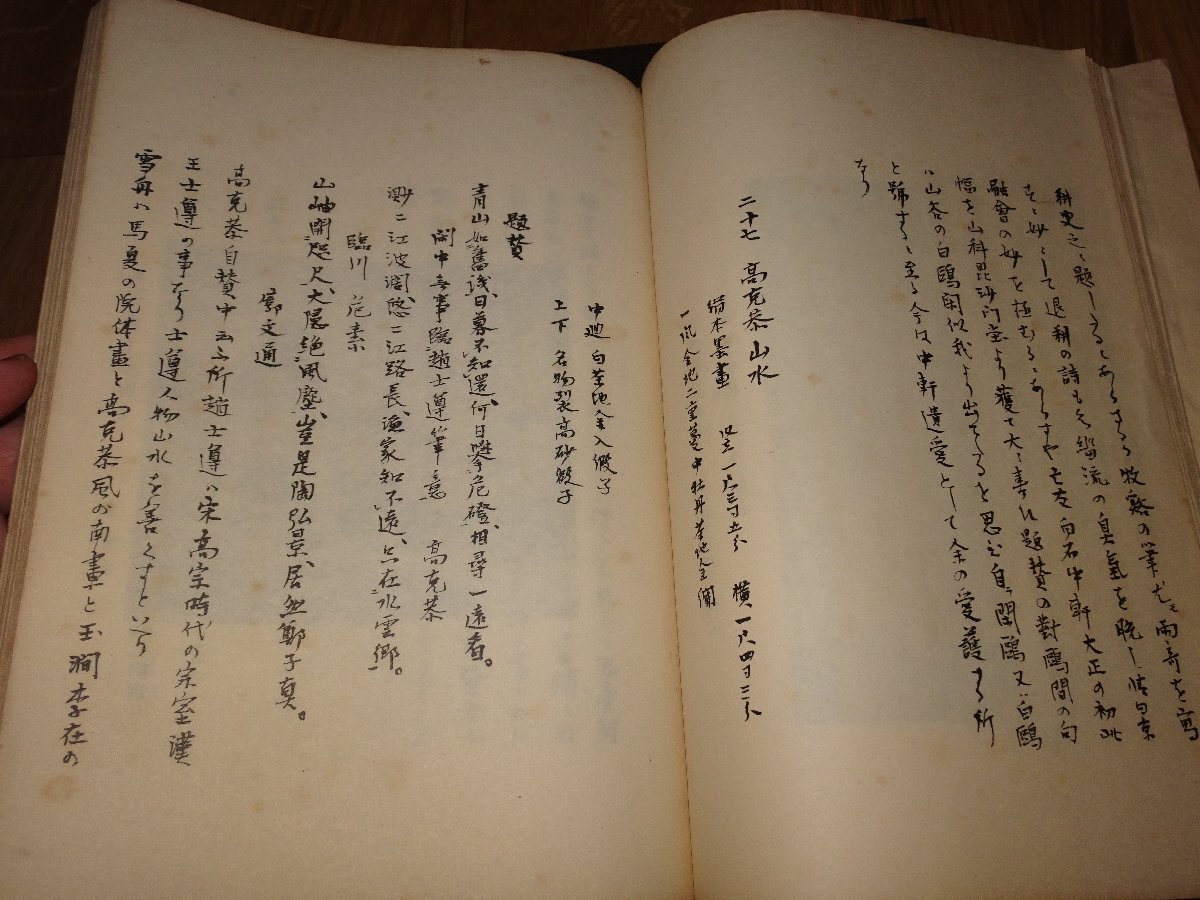 耕史之ニ題しるとあるまる牧谿の筆尤モ雨奇を寫
して退耕の詩も
融會の妙を極む 白石中軒大正の初此
幅を山科毘沙門堂より獲て大ニ喜ひ題賛の對鷗間の句
ハ山谷の白鷗閑似我より出てたると思ひ自ラ閑鷗又ハ白鷗
と號するニ至る今は中軒遺愛として余の愛護する所
なり
二十七 高克恭山水
絹本墨畫 竪一尺三寸五分 横一尺四寸二分
一風 金地二重蔓中牡丹 茶地金襴
中廻 白茶地金入緞子
上下 名物裂高砂緞子
題賛
青山如舊識、日暮不知還、何日攀危磴、相尋一遠看。
閑中無事臨趙士遵筆意 高克恭
渺ニ江波濶、悠ニ江路長、漁家知不遠、只在水雲鄉。
臨川 危素
山岫開咫尺、大隱絶風塵、豈是陶弘景、居然鄭子真。
郭文通
高克恭自賛中云ふ所趙士遵ハ宋高宗時代の宗室漢
王士遵の事なり士遵人物山水を善くすといふ
雪舟ハ馬夏の院体畫と高克恭風の南畫と玉澗李在の